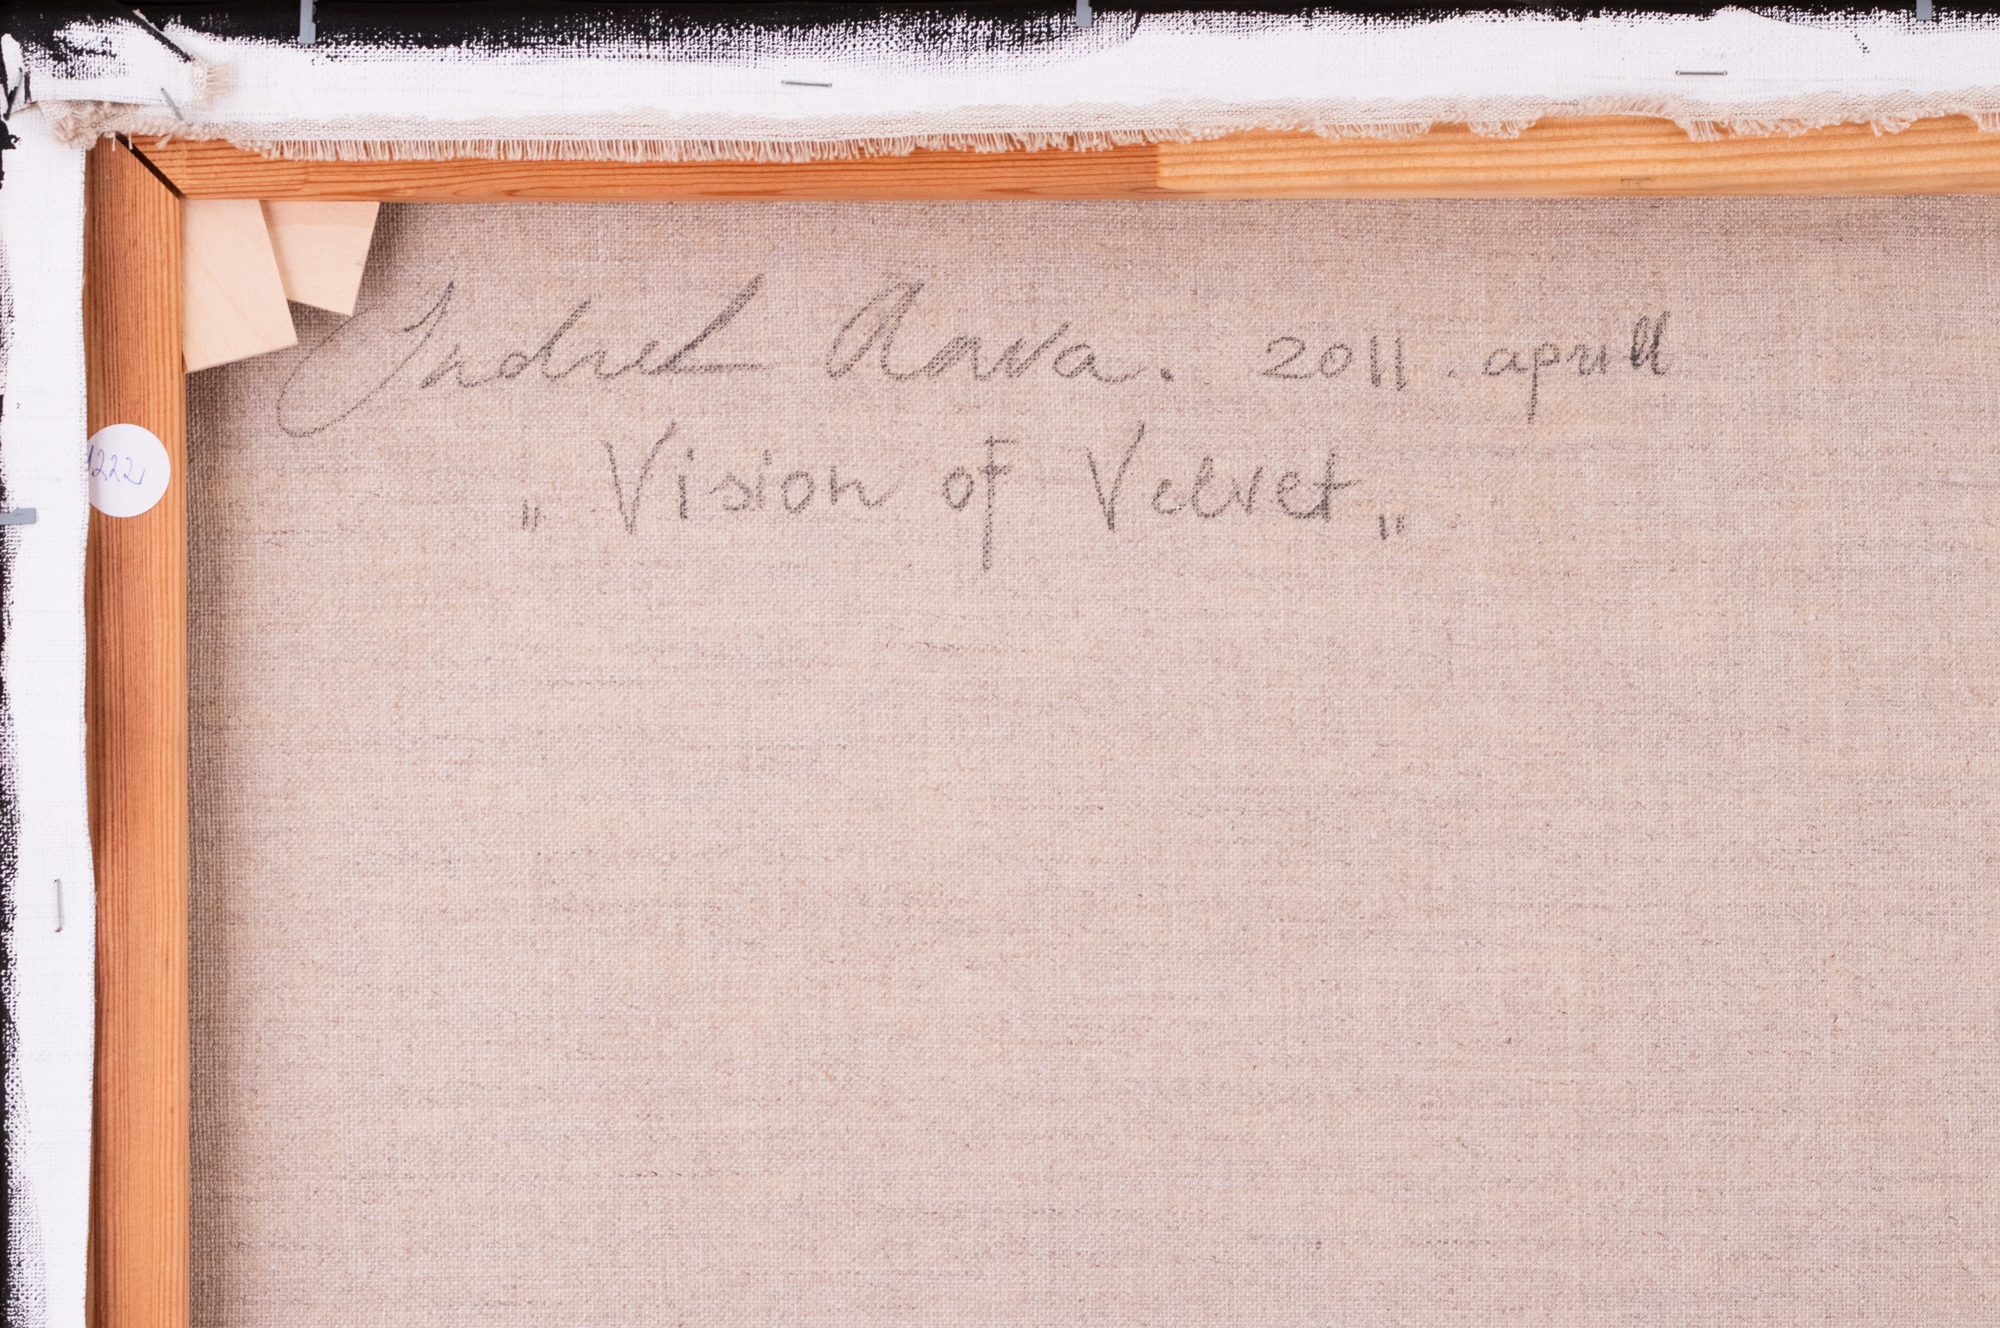 Indrek Aava. 2011. aprill
„Vision of Velvet„
1222